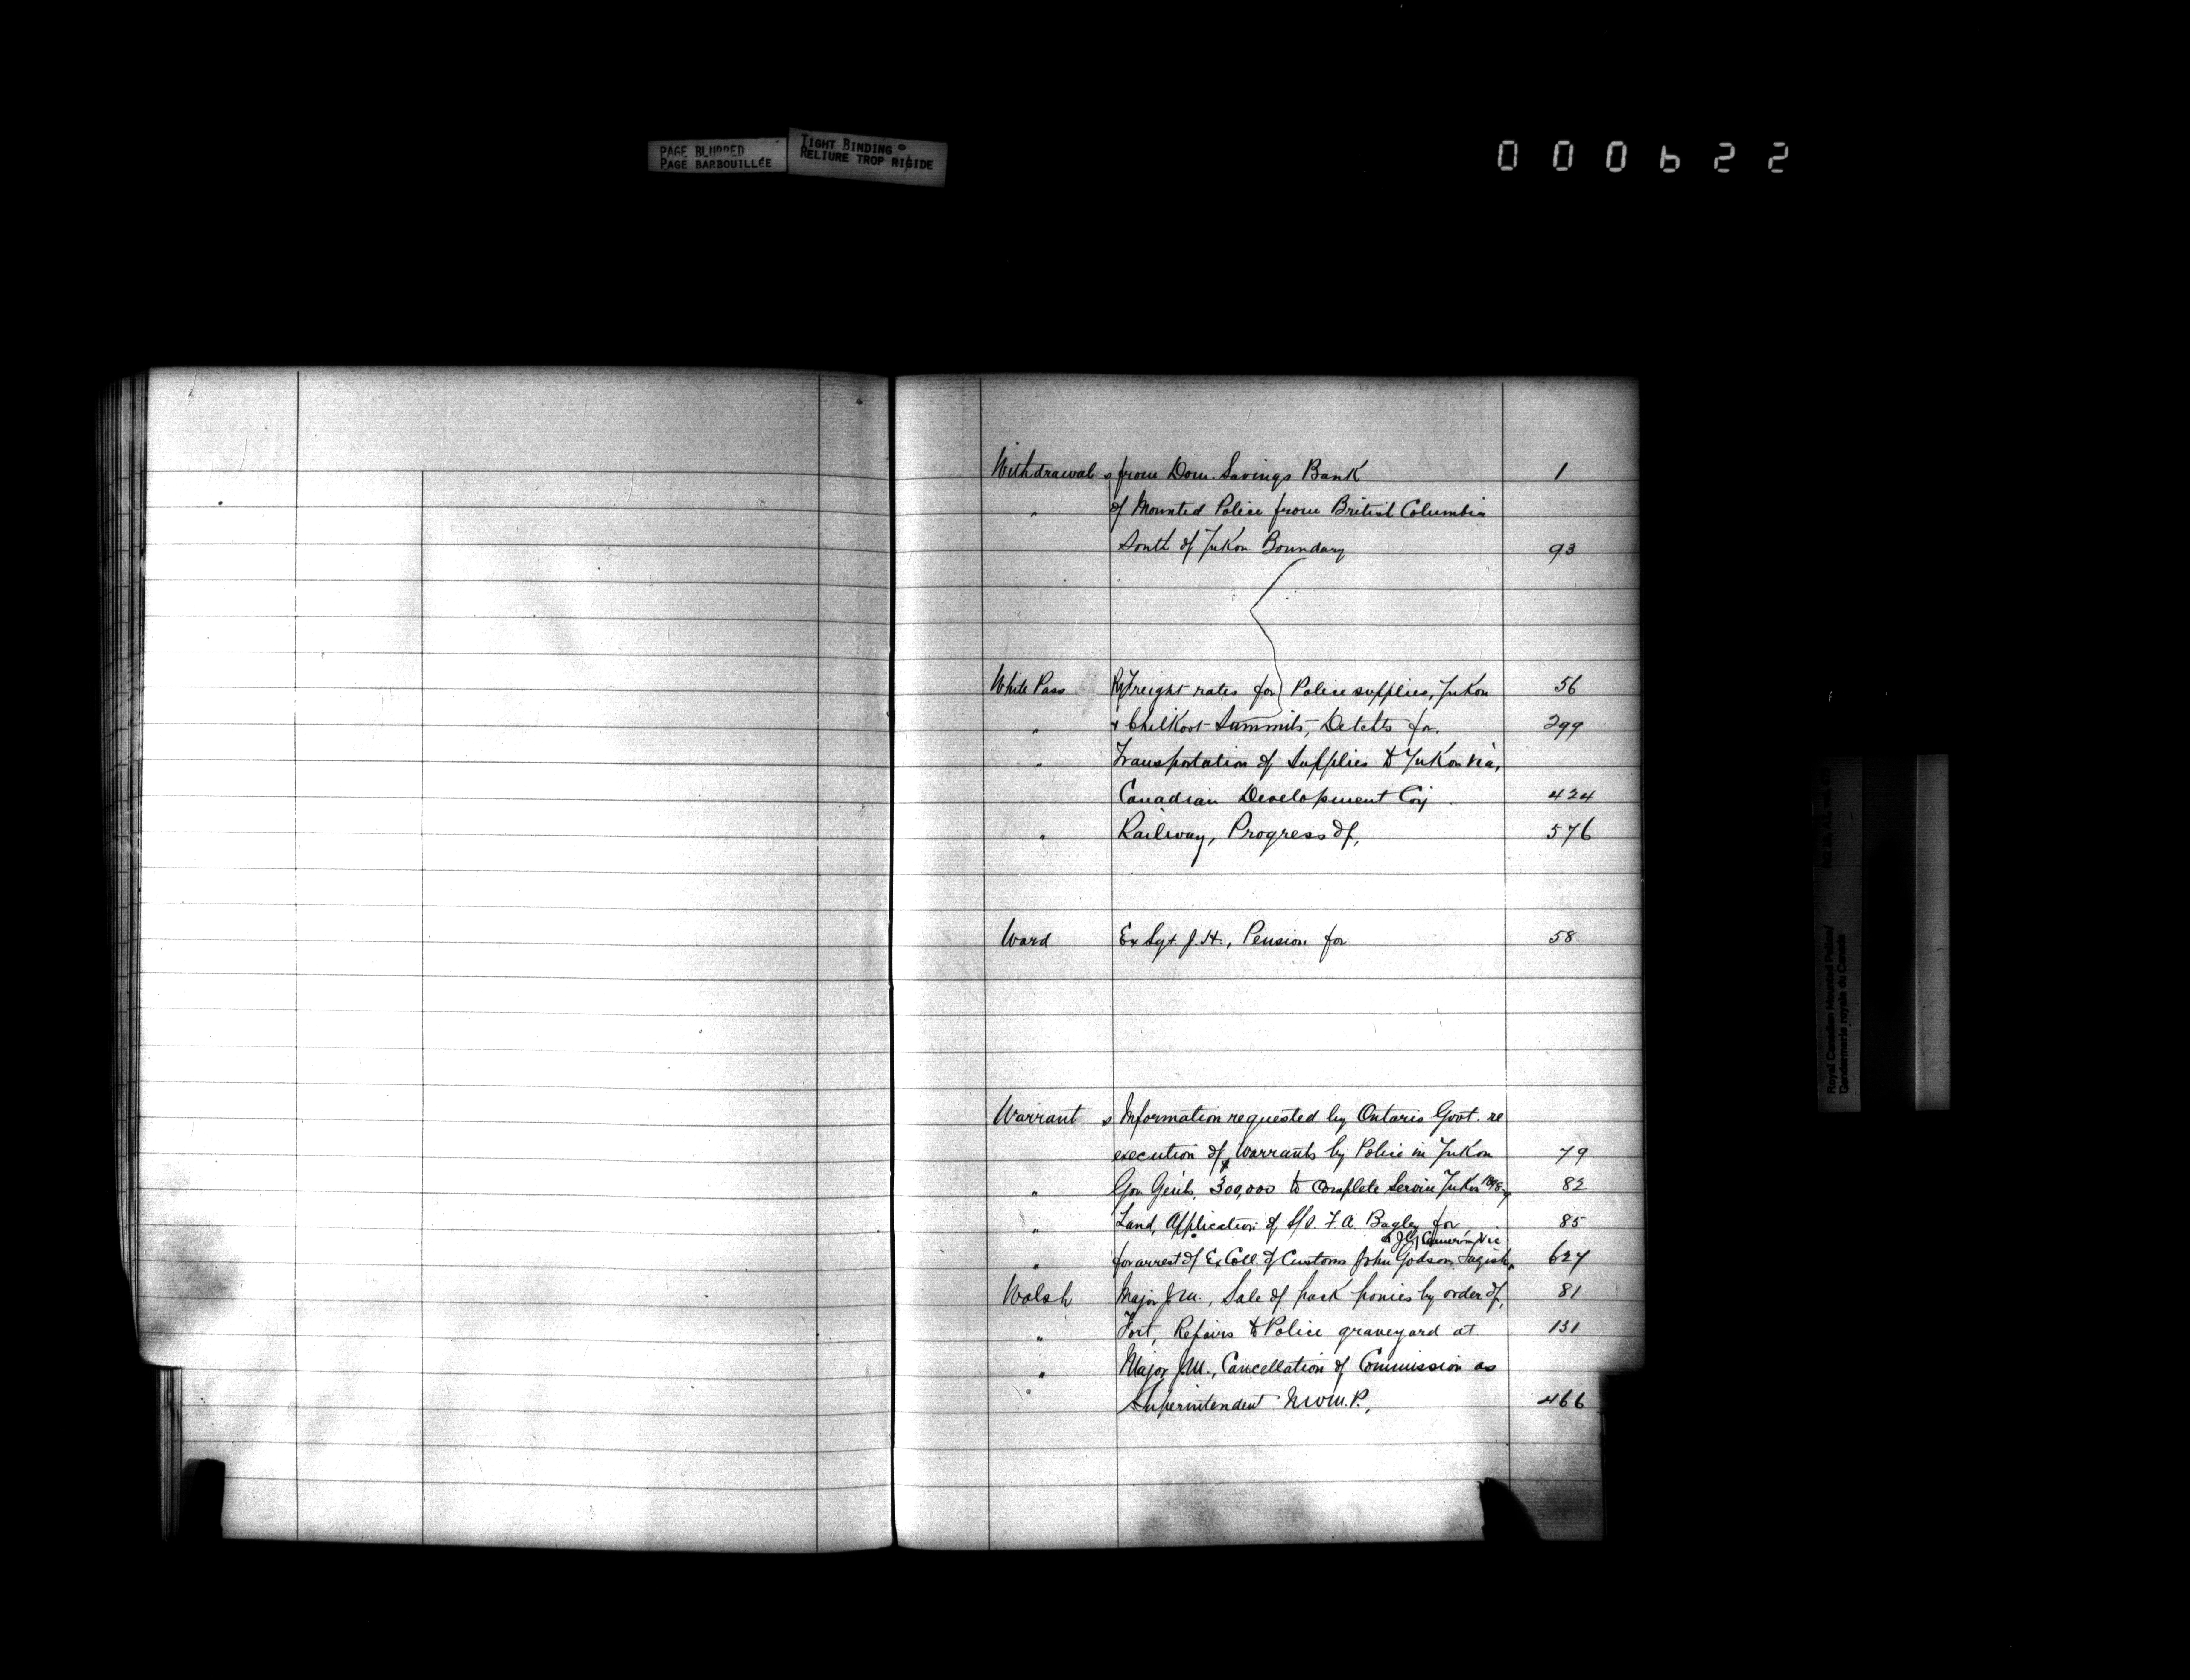 PAGE BLURRED
PAGE BARBOUILLÉE
TIGHT BINDING
RELIURE TROP RIGIDE
000622
Withdrawals from Dom. Savings Bank 1
" of Mounted Police from British Columbia
South of Yukon Boundary 93
White Pass Ry Freight rates for Police supplies, Yukon 56
" & Chilkoot Summits, Detchts for, 299
" Transportation of Supplies to Yukon via,
Canadian Development Coy 424
" Railway, Progress of, 576
Ward Ex Sgt. J. H., Pension for 58
Warrants Information requested by Ontario Govt. re
execution of Warrants by Police in Yukon 79
" Gov Genls, $300,000 to complete Service Yukon 1898-9 82
" Land, Application of S/S. F. A. Bagley for 85
& Cameron, Vic
" for arrest of Ex Coll. of Customs John Godson, Tagish, 627
Walsh Major J.M., Sale of pack ponies by order of, 81
" Fort, Repairs to Police graveyard at 131
" Major J.M., Cancellation of Commission as
" Superintendent N.W.M.P., 466
Royal Canadian Mounted Police/
Gendarmerie royale du Canada